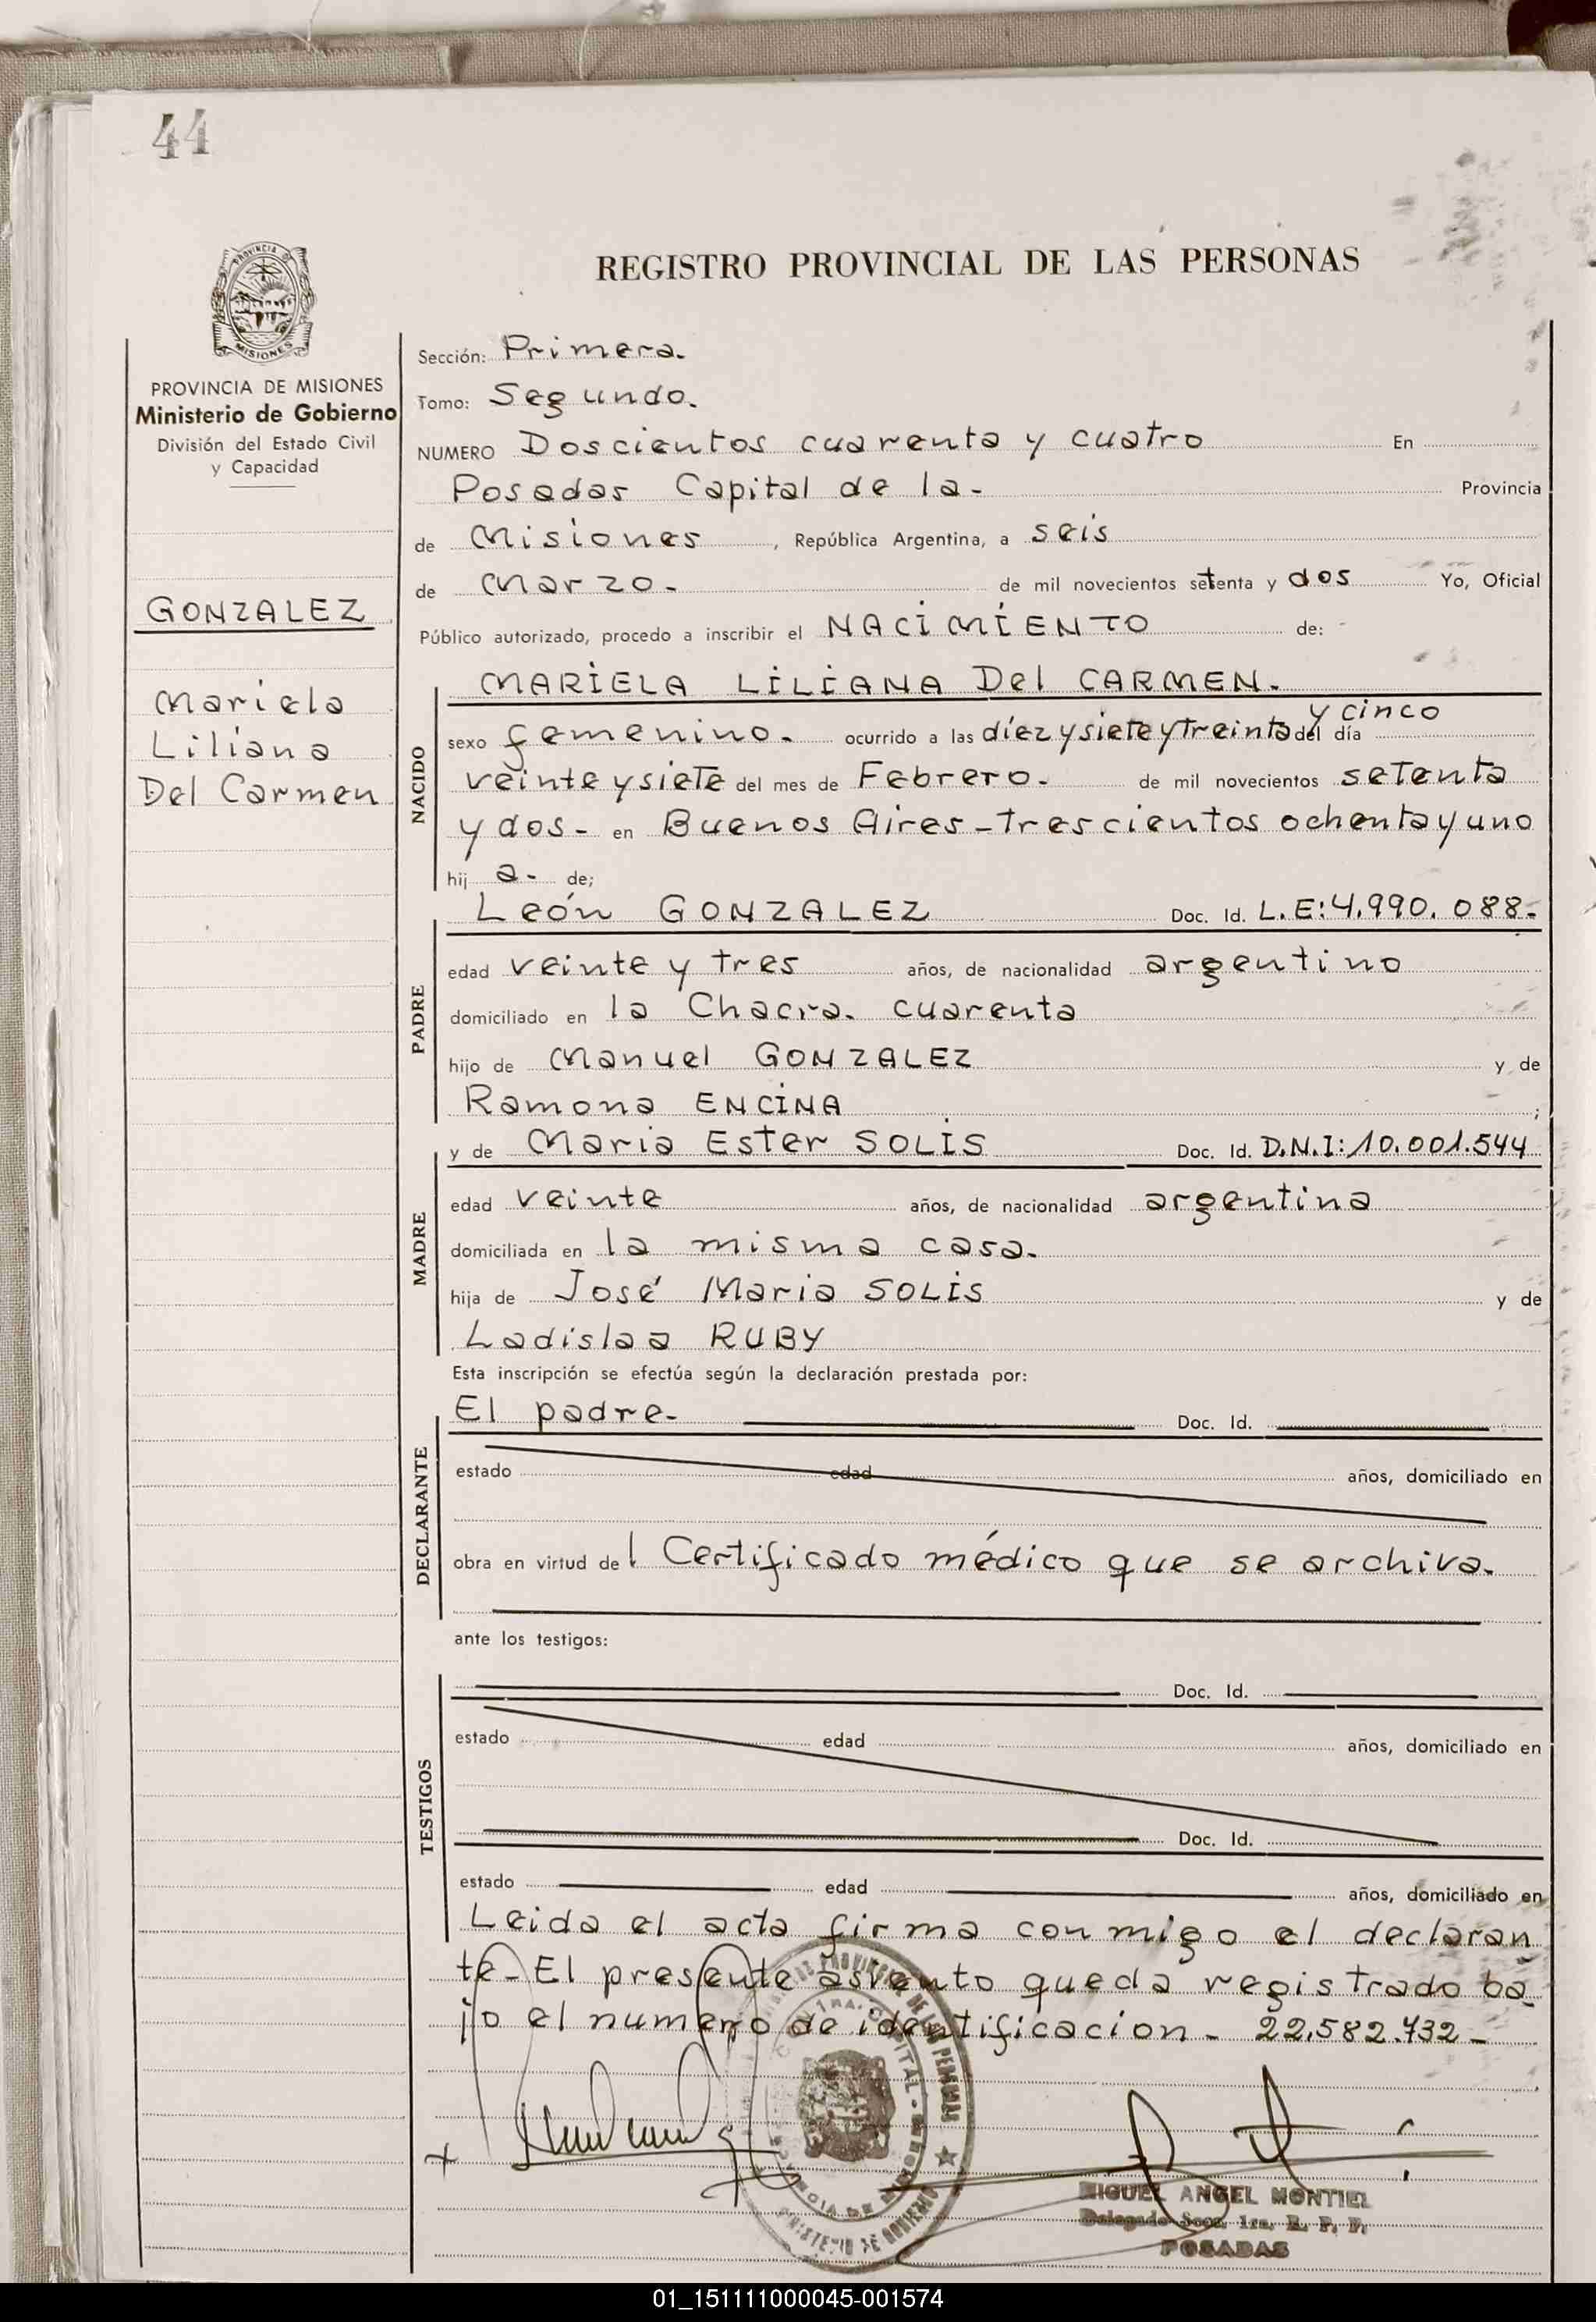 44
REGISTRO PROVINCIAL DE LAS PERSONAS
PROVINCIA
MISIONES
PROVINCIA DE MISIONES
Ministerio de Gobierno
División del Estado Civil
y Capacidad
GONZALEZ
Mariela
Liliana
Del Carmen
Sección: Primera.
Tomo: Segundo.
NUMERO Doscientos cuarenta y cuatro En
Posadas Capital de la- Provincia
de Misiones , República Argentina, a seis
de Marzo- de mil novecientos setenta y dos Yo, Oficial
Público autorizado, procedo a inscribir el NACIMIENTO de:
NACIDO
MARIELA LILIANA Del CARMEN.
y cinco
sexo femenino. ocurrido a las diez y siete y treinta del día
veinte y siete del mes de Febrero. de mil novecientos setenta
y dos- en Buenos Aires-trescientos ochenta y uno
hij a. de;
PADRE
León GONZALEZ Doc. Id. L.E:4.990.088-
edad veinte y tres años, de nacionalidad argentino
domiciliado en la Chacra. cuarenta
hijo de Manuel GONZALEZ y de
Ramona ENCINA ;
MADRE
y de Maria Ester SOLIS Doc. Id. D.N.I:10.001.544
edad veinte años, de nacionalidad argentina
domiciliada en la misma casa.
hija de José Maria SOLIS y de
Ladislaa RUBY
Esta inscripción se efectúa según la declaración prestada por:
DECLARANTE
El padre- Doc. Id.
estado edad años, domiciliado en
obra en virtud del Certificado médico que se archiva.
ante los testigos:
TESTIGOS
Doc. Id.
estado edad años, domiciliado en
Doc. Id.
estado edad años, domiciliado en
Leida el acta firma conmigo el declaran
te- El presente asiento queda registrado ba
jo el numero de identificacion- 22.582.432-
MIGUEL ANGEL MONTIEL
Delegado Secc. 1ra. R. P. P.
POSADAS
01_151111000045-001574